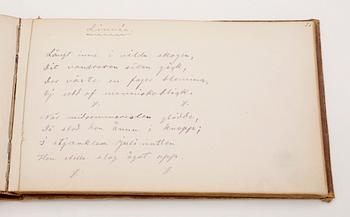 Linnéa.
Långt inne i vilda skogen,
Dit vandraren sällan gick,
Der växte en fager blomma,
Ej sedd af menniskoblick.
Når midsommarsolen glödde,
Då stod hon ännu i knopp;
I stjernklara juli natten
Hon stilla slog ögat opp.